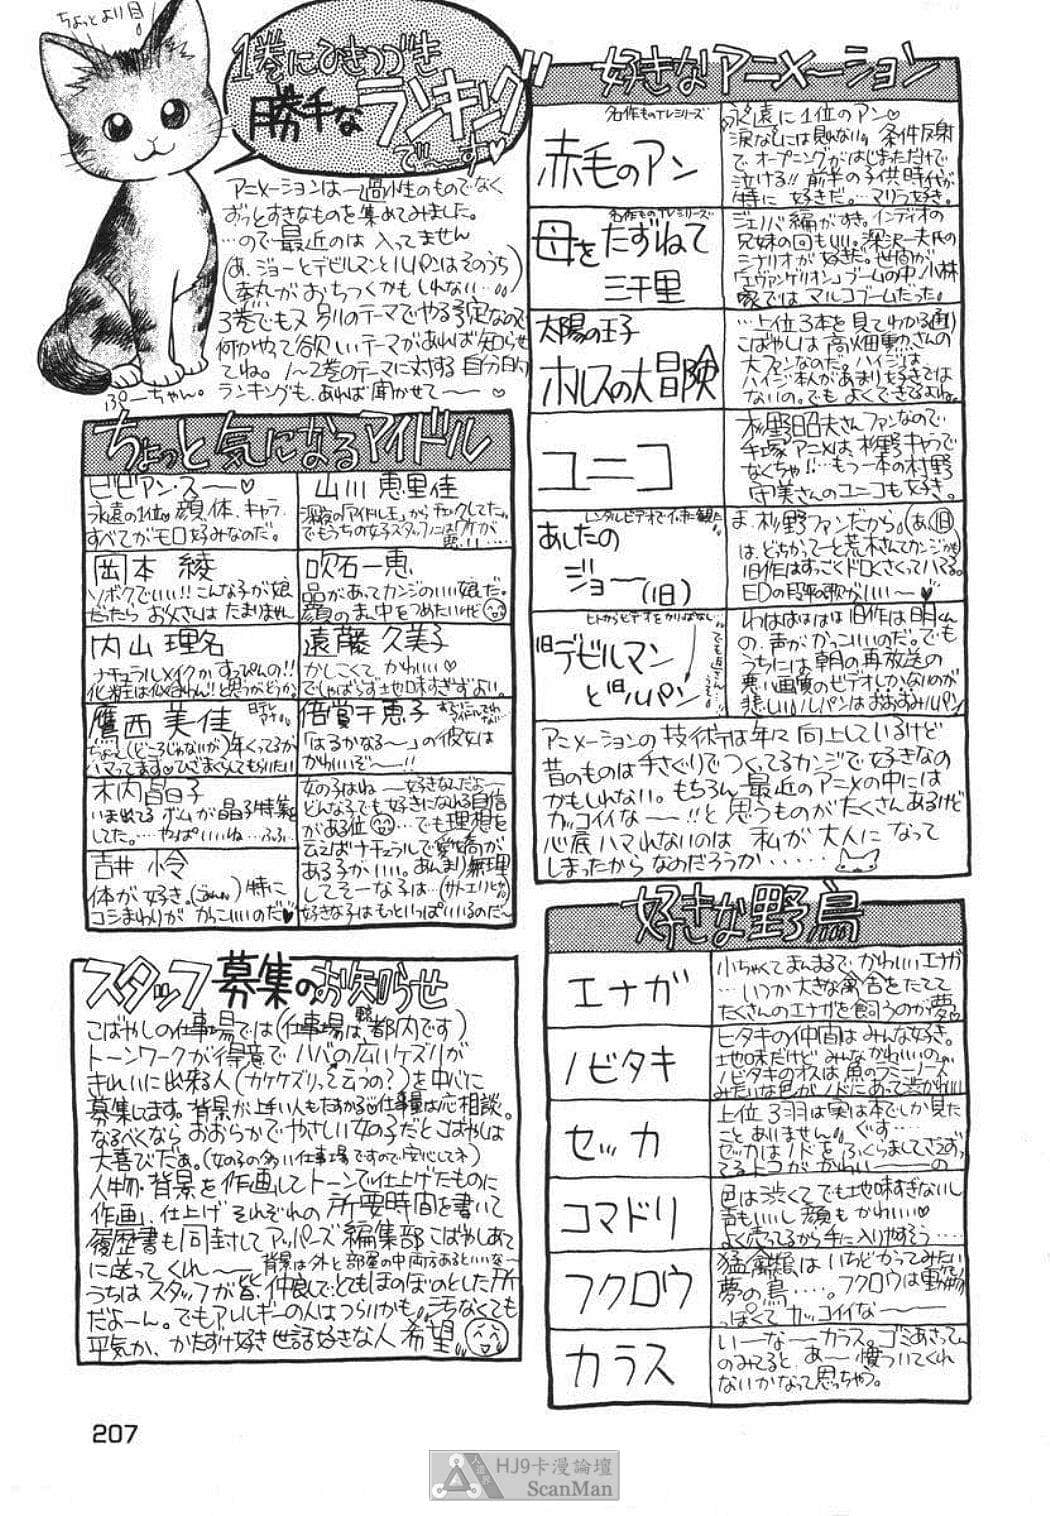 ちょっとより目。
1巻にひきつづき
勝手な
ランキング
で〜す♥
アニメーションは一過性のものでなく
ずっとすきなものを集めてみました。
…ので最近のは入ってません
(あ、ジョーとデビルマンとルパンはそのうち
3巻でも又別のテーマでやる予定なので
何かやって欲しいテーマがあれば知らせ
てね。1〜2巻のテーマに対する自分の
ランキングも、あれば聞かせて〜
ぷーちゃん。
ちょっと気になるアイドル
ビビアン・スー♡
永遠の1位。顔、体、キャラ、
すべてがモロ好みなのだ。
山川恵里佳
深夜の「アイドル王」からチェックしてた。
岡本綾
ソボクでいい!!こんな子が娘
だったらお父さんはたまりません
吹石一恵
品があってカンジのいい娘だ。
顔のまん中をつめたいけど
内山理名
ナチュラルメイクかすっぴんの!!
化粧は似合わん!!と思うがどうか。
遠藤久美子
かしこくてかわいい♡
でしゃばらず地味すぎずよい。
鷹西美佳
日テレアナ
ハマってます♥ひざまくらしてもらいたい
倍賞千恵子
「はるかなる〜」の彼女は
かわいいぞ〜!!
木内晶子
いま出てるボムが晶子特集を
してた。……やっぱいいね…ふふ…
吉井怜
体が好き。特に
コシまわりがかっこいいのだ♥
女の子はね〜好きなんだよ〜
どんな子でも好きになれる自信
がある位…でも理想を
云えばナチュラルで愛嬌が
ある子がいい。あんまり無理
してそーな子は…
好きな子はもっといっぱいいるのだ〜
スタッフ募集のお知らせ
こばやしの仕事場では(仕事場は都内です)
トーンワークが得意でハバの広いケズリが
きれいに出来る人(カケケズリって云うの?)を中心に
募集します。背景が上手い人もたすかる♡仕事量は応相談。
なるべくならおおらかでやさしい女の子だとこばやしは
大喜びだぁ。(女の子の多い仕事場ですので安心してネ)
人物・背景を作画してトーンで仕上げたものに
作画、仕上げそれぞれの所要時間を書いて
履歴書も同封してアッパーズ編集部こばやしあて
に送ってくれ〜
背景は外と部屋の中両方あるといいな〜
うちはスタッフが皆、仲良しでともほのぼのとした所
だよーん。でもアレルギーの人はつらいかも。汚なくても
平気か、かたずけ好き世話好きな人希望。
好きなアニメーション
名作ものTVシリーズ
赤毛のアン
永遠に1位のアン♡
涙なしには見れない。条件反射
でオープニングがはじまっただけで
泣ける!!前半の子供時代が
特に好きだ。…マリラ好き。
名作ものTVシリーズ
母をたずねて
三千里
ジェノバ編がすき。インディオの
兄妹の回もいい。深沢一夫氏の
シナリオが好きだ。世間が
「エヴァンゲリオン」ブームの中、小林
家ではマルコブームだった。
太陽の王子
ホルスの大冒険
…上位3本を見てわかる通り
こばやしは高畑勲さんの
大ファンなのだ。ハイジは
ハイジ本人があまり好きでは
ないの。でもよくできてるよね。
ユニコ
杉野昭夫さんファンなので
手塚アニメは、杉野キャラで
なくちゃ!!…もう一本の村野
守美さんのユニコも好き。
レンタルビデオでイッキに観た
あしたの
ジョー(旧)
ま、杉野ファンだから。(あ、旧)
は、どちかってーと荒木さんてカンジかも
旧作はすっごくドロくさくってハマる。
EDの段平の歌がいい〜♥
ヒトからビデオをかりっぱなし…
旧デビルマン
と旧ルパン
わはははは旧作は明くん
の声がかっこいいのだ。でも
うちには朝の再放送の
悪い画質のビデオしかないのが
悲しい。ルパンはおおすみルパン
アニメーションの技術は年々向上しているけど
昔のものは手さぐりでつくってるカンジで好きなの
かもしれない。もちろん最近のアニメの中には
カッコイイな〜!!と思うものがたくさんあるけど
心底ハマれないのは私が大人になって
しまったからなのだろうか……
好きな野鳥
エナガ
小ちゃくてまんまるでかわいいエナガ
…いつか大きな禽舎をたてて
たくさんのエナガを飼うのが夢♡
ノビタキ
ヒタキの仲間はみんな好き。
地味だけどみんなかわいいの。
ノビタキのオスは魚のサーモン
みたいな色がノドにあって渋かわいい
セッカ
上位3羽は実は本でしか見た
ことありません。ぐす…
セッカはノドをふくらましてさえずっ
てるトコがかわい〜の
コマドリ
色は渋くてでも地味すぎないし
声もいいし顔もかわいい♡
よく売ってるから手に入りやすそう……
フクロウ
猛禽類はいちどかってみたい
夢の鳥……。フクロウは動物
っぽくてカッコイイな〜
カラス
い〜な〜カラス。ゴミあさってん
のみてると、あ〜懐ついてくれ
ないかなって思っちゃう。
207
HJ9卡漫論壇
ScanMan